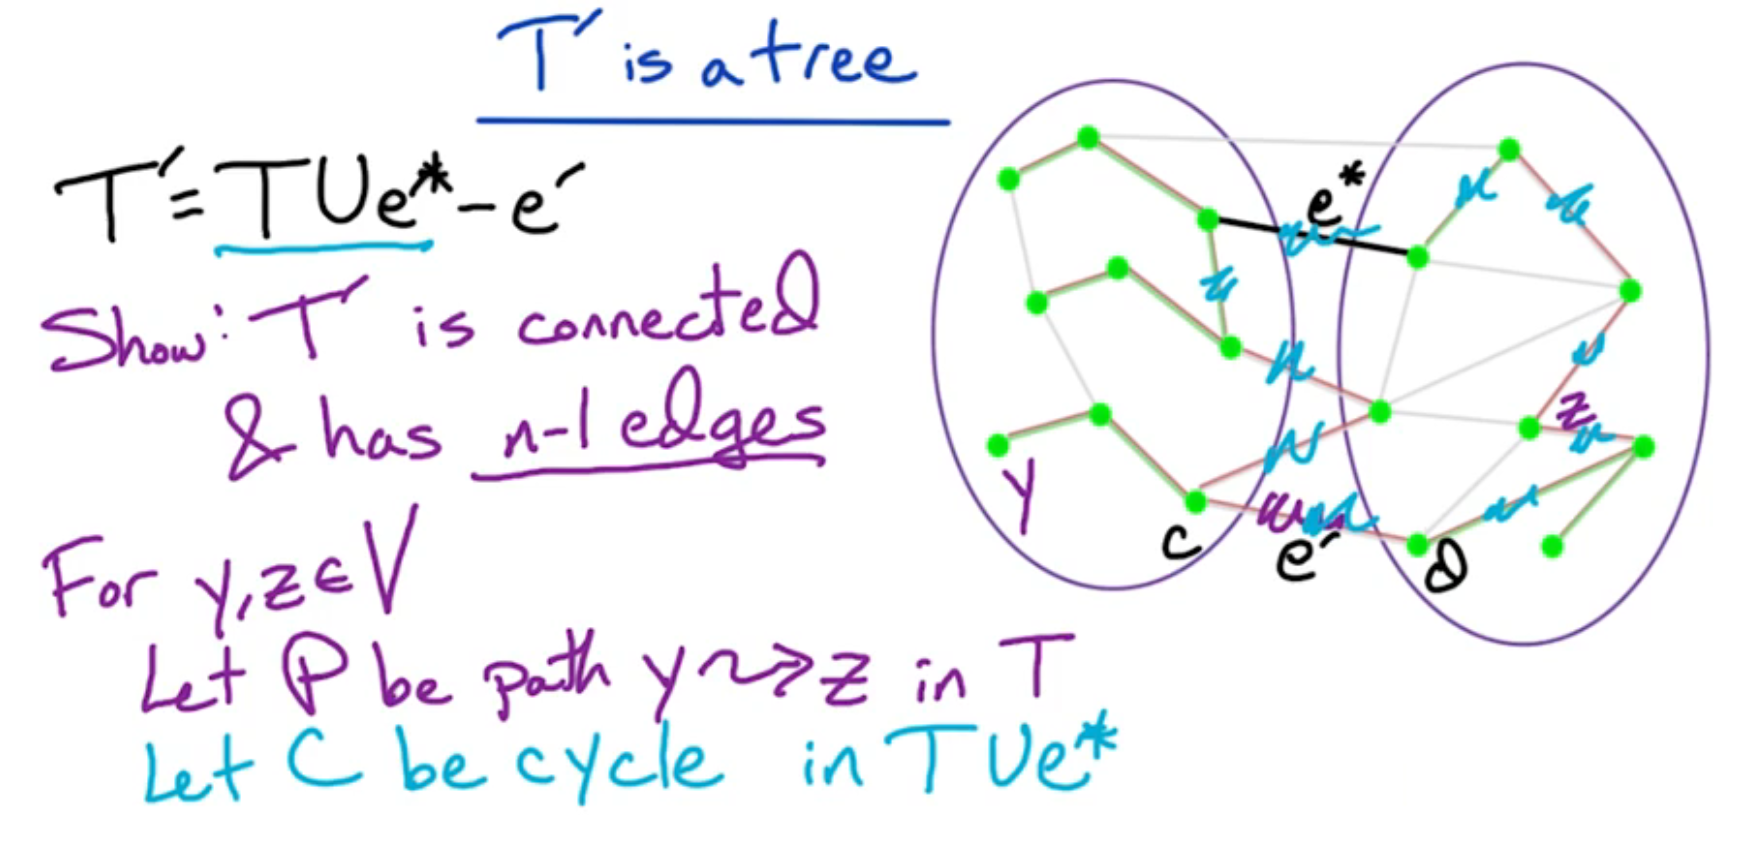 T′ is a tree
T′ = T ∪ e* − e′
Show: T′ is connected
& has n−1 edges
For y, z ∈ V
Let P be path y ⇝ z in T
Let C be cycle in T ∪ e*
e*
z
y
c
e′
d